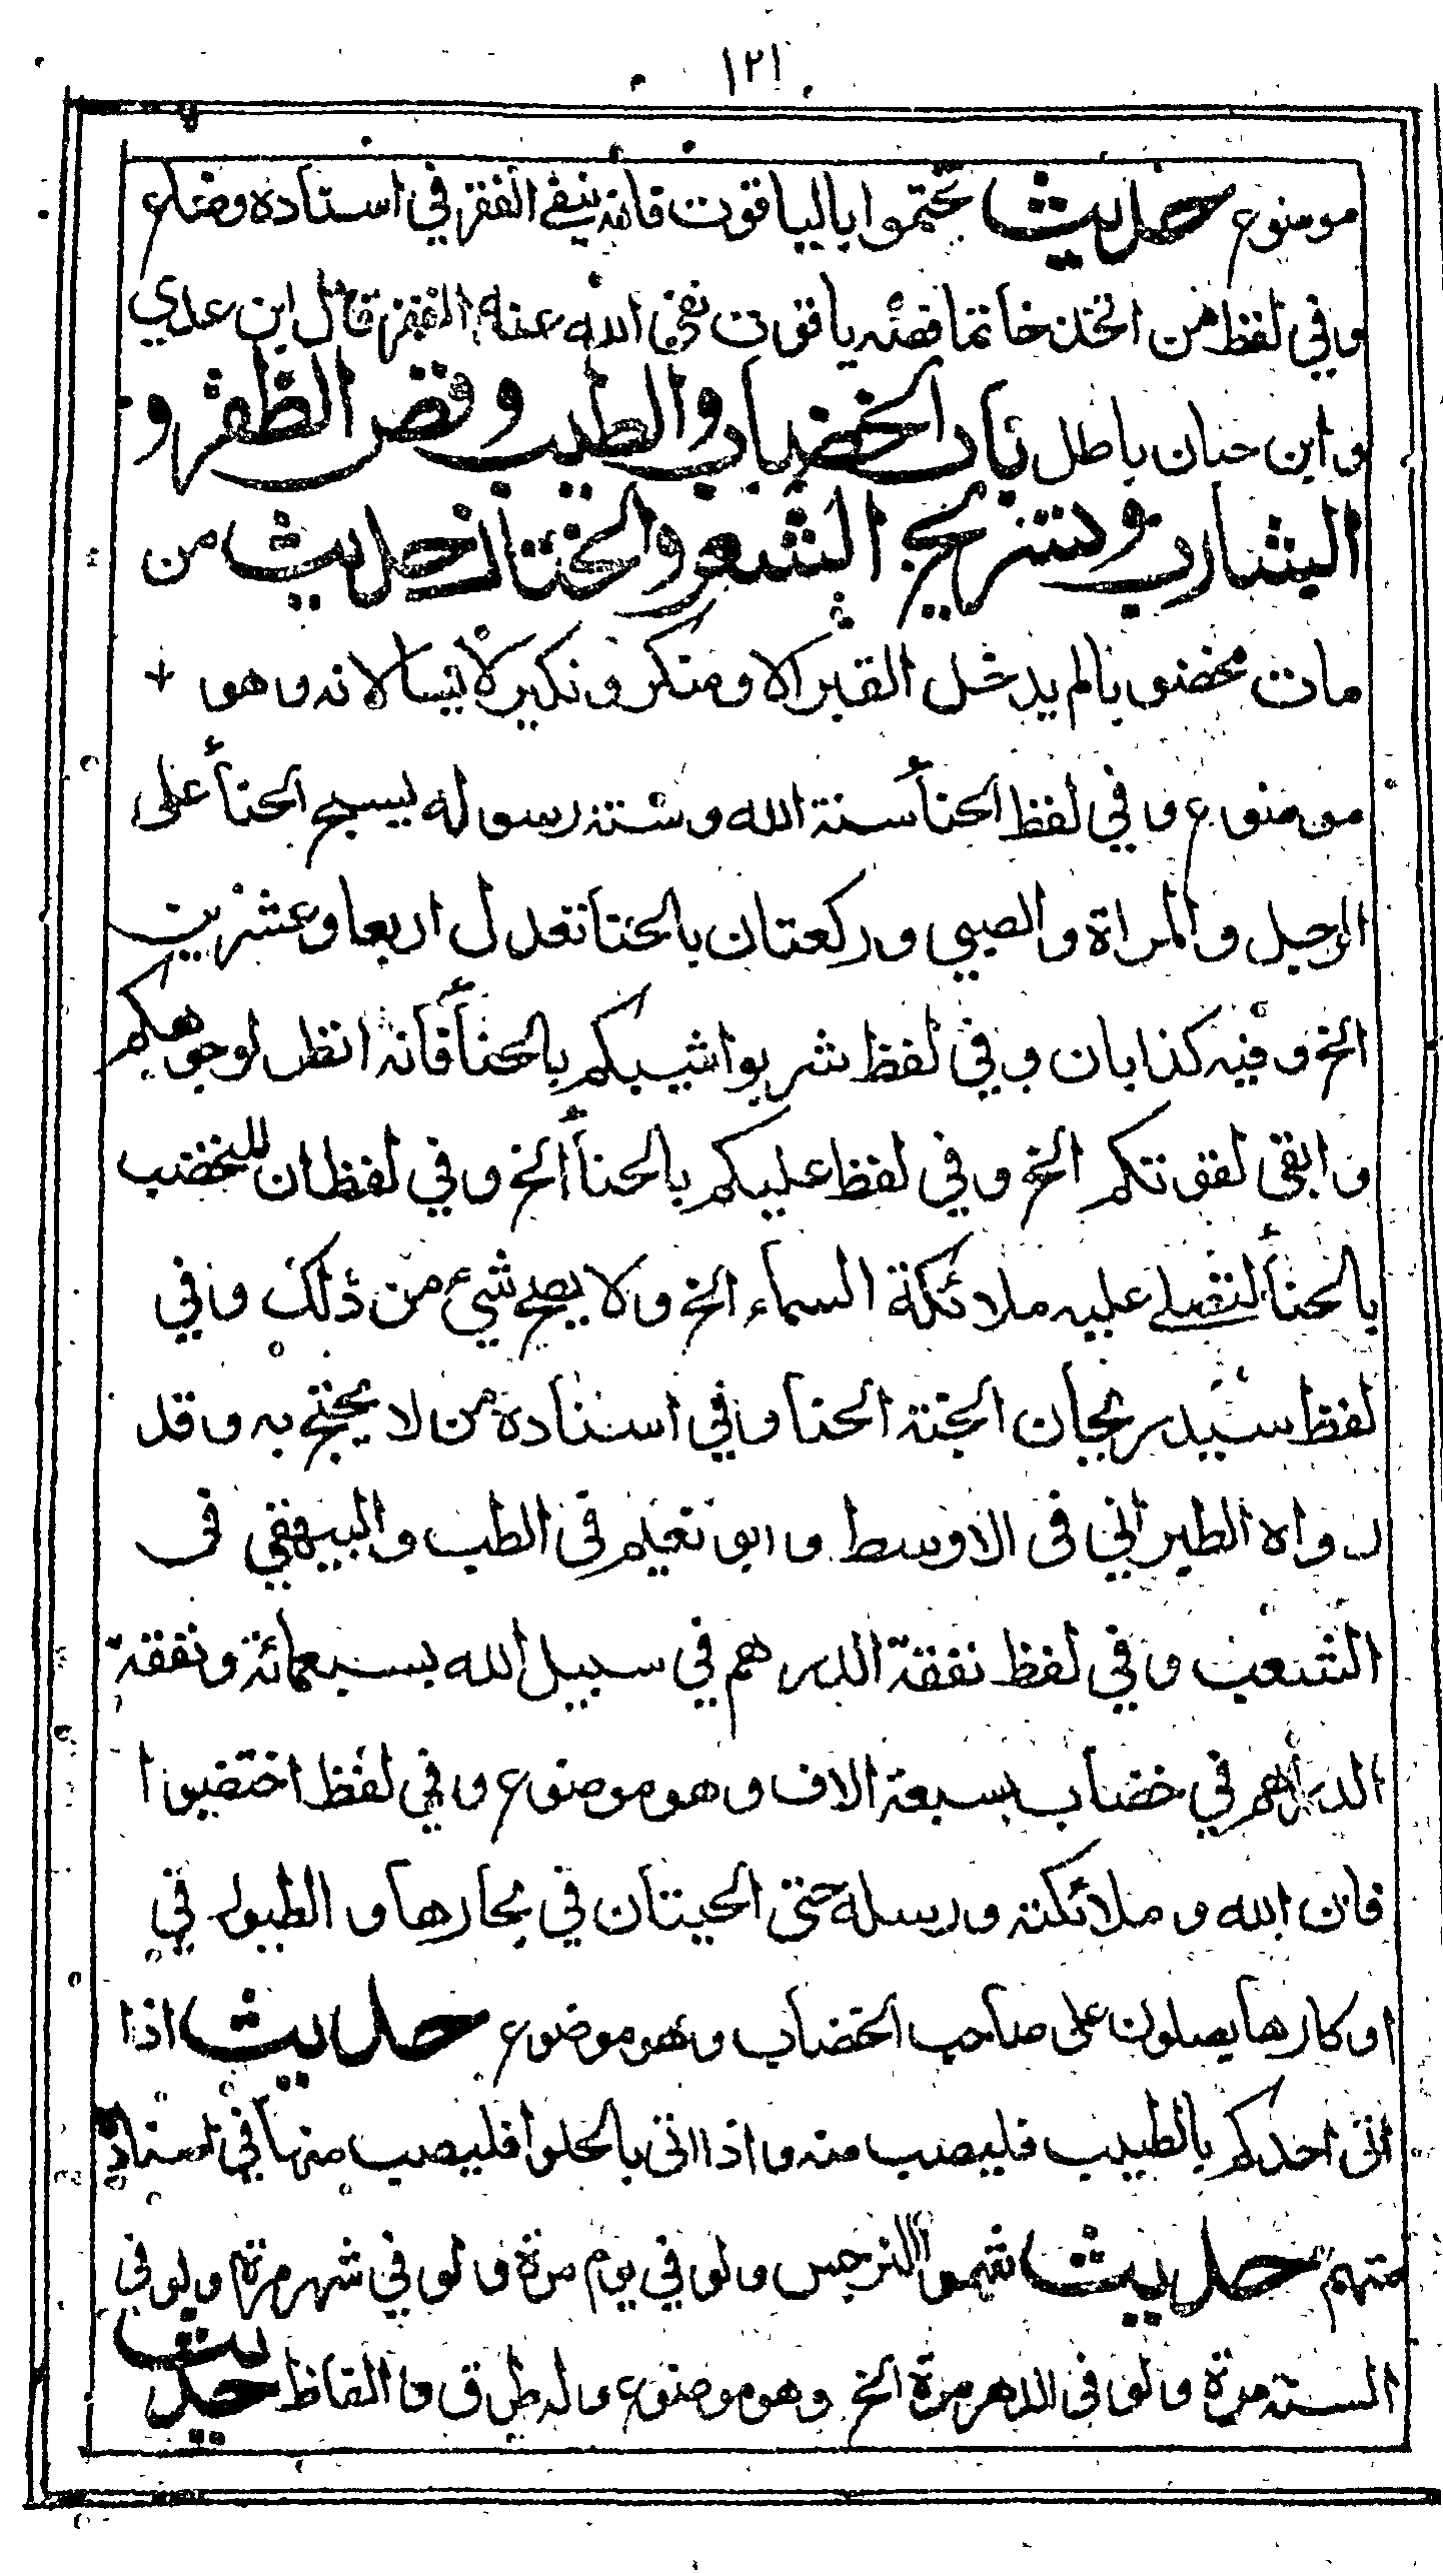 ١٢١
موضوع حديث تختموا بالياقوت فانه ينفي الفقر في اسناده وضاع
وفي لفظ من اتخذ خاتما فصّه ياقوت نفى الله عنه الفقر قال ابن عدي
و ابن حبان باطل باب الخضاب والطيب وقص الظفر و
الشارب وتسريح الشعر والختان حديث من
مات مخضوبا لم يدخل القبر الا ومنكر ونكير لا يسالانه وهو
موضوع وفي لفظ الحنأ سنة الله وسنّة رسوله يسبح الحنأ على
الرجل والمراة والصبي وركعتان بالحنا تعدل اربعا وعشرين
الخ وفيه كذابان وفي لفظ شربوا شيبكم بالحنأ فانه انظر لوجوهكم
وابقى لقوتكم الخ وفي لفظ عليكم بالحنأ الخ وفي لفظ ان للمخضب
بالحنأ لتصلے عليه ملائكة السماء الخ ولا يصح شيء من ذلك وفي
لفظ سيّد ريحان الجنة الحنا وفي اسناده من لا يحتج به وقد
رواه الطبراني في الاوسط وابو نعيم في الطب والبيهقي في
الشعب وفي لفظ نفقة الدرهم في سبيل الله بسبعمائة ونفقة
الدراهم في خضاب بسبعة الاف وهو موضوع وفي لفظ اختضبوا
فان الله وملائكته ورسله حتى الحيتان في بحارها والطيور في
اوكارها يصلون على صاحب الخضاب وهو موضوع حديث اذا
اتى احدكم بالطيب فليصب منه واذا اتى بالحلوا فليصب منها في اسناده
متهم حديث شموا النرجس ولو في يوم مرة ولو في شهر مرة ولو في
السنة مرة ولو في الدهر مرة الخ وهو موضوع وله طرق والفاظ حديث